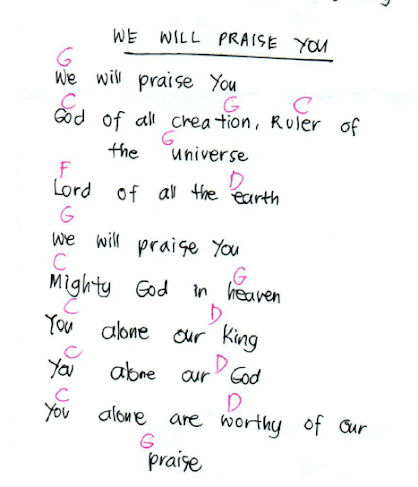 WE WILL PRAISE YOU
G
We will praise You
C G C
God of all creation, Ruler of
G
the universe
F D
Lord of all the earth
G
We will praise You
C G
Mighty God in heaven
C D
You alone our King
C D
You alone our God
C D
You alone are worthy of our
G
praise